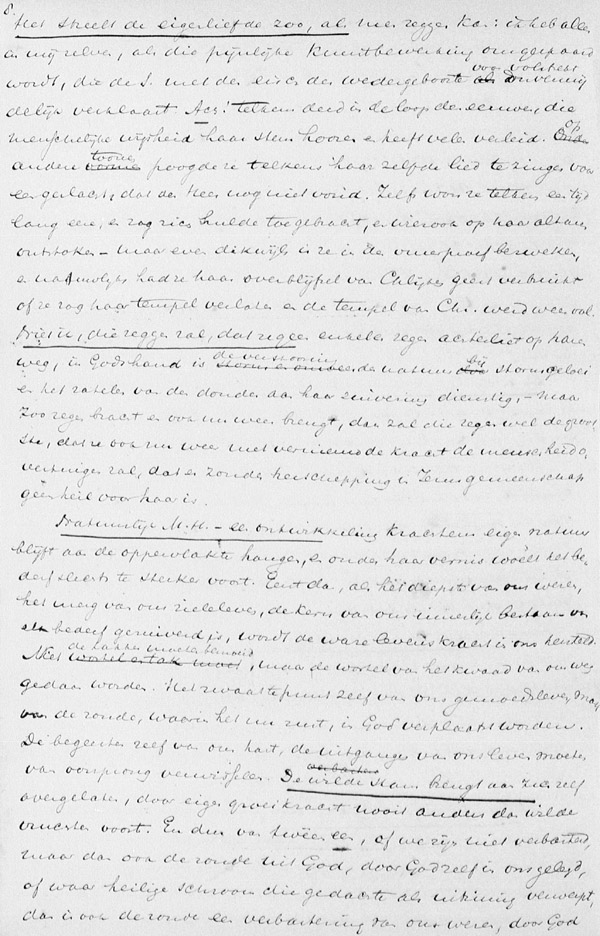 8.
Het streelt de eigenliefde zoo, als men zeggen kan: ik heb alles
in mij zelven, als die pijnlijke kunstbewerking ons gespaard
wordt, die de S. met den eisch der wedergeboorte voor volstrekt
onvermij
delijk verklaart. Ach! telkens deed in de loop der eeuwen die
menschelijke wijsheid haar stem hooren en heeft velen verleid. Op
anderen toone poogde ze telkens haar zelfde lied te zingen voor
een geslacht, dat den Heer nog niet vond. Zelfs won ze telkens een tijd
lang eere, en zag zich hulde toegebracht, en wierook op haar altaren
ontstoken – maar even dikwijls is ze in de vuurproef bezweken,
en nauwlijks had ze haar overblijfsel van Christus geest verbruikt
of ze zag haar tempel verlaten en de tempel van Chr. werd weer vol.
die zeggen zal, dat zij geen enkelen zegen achterliet op haren
weg, in Gods hand is de verstooring der natuur bij stormgeloei
en het ratelen van den donder aan haar zuivering dienstig, – maar
zoo zegen bracht en ook nu weer brengt, dan zal die zegen wel de groot
ste, dat ze ook nu weer met vernieuwde kracht de menschheid o
vertuigen zal, dat er zonder herschepping in Jezus gemeenschap
géén heil voor haar is.
Natuurlijk M.H. – een ontwikkeling krachtens eigen natuur
blijft aan de oppervlakte hangen, en onder haar vernis woelt het be
derf slechts te sterker voort. Eerst dan, als het diepst van ons wezen,
het merg van ons zieleleven, de kern van ons innerlijk bestaan van
bederf gezuiverd is, wordt de ware levenskracht in ons hersteld.
Niet de takken moeten besnoeid, maar de wortel van het kwaad van ons weg
gedaan worden. Het zwaartepunt zelf van ons gemoedsleven moet
van de zonde, waarin het nu rust, in God verplaatst worden.
De begeerten zelf van ons hart, de uitgangen van ons leven moeten
van oorsprong verwisselen. De wilde stam brengt aan zich zelf
overgelaten, door eigen groeikracht nooit anders dan wilde
vruchten voort. En dus van tweeën een, of we zijn niet verbasterd,
maar dan ook de zonde uit God, door God zelf in ons gelegd,
of waar heilige schroom die gedachte als verwerpt,
dan is ook de zonde een verbastering van ons wezen, door God